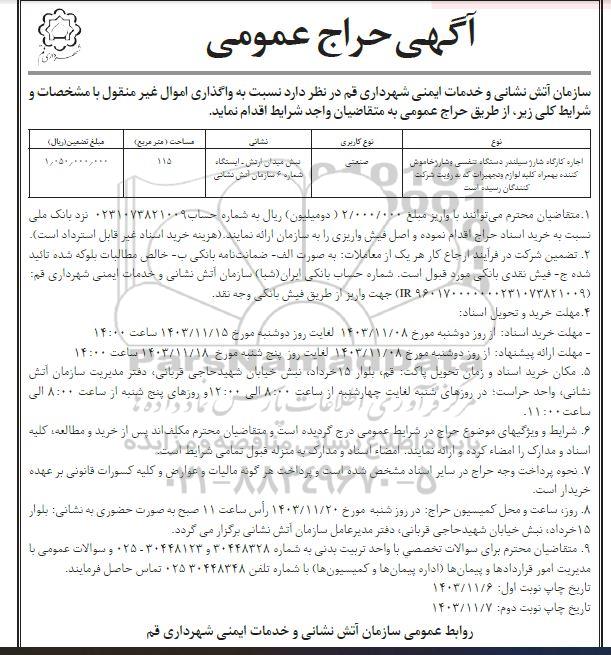 آگهی حراج عمومی
شهرداری قم
سازمان آتش نشانی و خدمات ایمنی شهرداری قم در نظر دارد نسبت به واگذاری اموال غیر منقول با مشخصات و
شرایط کلی زیر، از طریق حراج عمومی به متقاضیان واجد شرایط اقدام نماید.
نوع نوع کاربری نشانی مساحت (متر مربع) مبلغ تضمین(ریال)
اجاره کارگاه شارژ سیلندر دستگاه تنفسی وشارژخاموش صنعتی نبش میدان ارتش - ایستگاه ۱۱۵ ۱,۰۵۰,۰۰۰,۰۰۰
کننده بهمراه کلیه لوازم وتجهیزات که به رؤیت شرکت شماره ۶ سازمان آتش نشانی
کنندگان رسیده است
۱. متقاضیان محترم می‌توانند با واریز مبلغ ۲/۰۰۰/۰۰۰ (دومیلیون) ریال به شماره حساب۰۲۳۱۰۷۳۸۲۱۰۰۹ نزد بانک ملی
نسبت به خرید اسناد حراج اقدام نموده و اصل فیش واریزی را به سازمان ارائه نمایند. (هزینه خرید اسناد غیر قابل استرداد است).
۲. تضمین شرکت در فرآیند ارجاع کار هر یک از معاملات: به صورت الف- ضمانت‌نامه بانکی ب- خالص مطالبات بلوکه شده تائید
شده ج- فیش نقدی بانکی مورد قبول است. شماره حساب بانکی ایران(شبا) سازمان آتش نشانی و خدمات ایمنی شهرداری قم:
(IR ۹۶۰۱۷۰۰۰۰۰۰۰۲۳۱۰۷۳۸۲۱۰۰۹) جهت واریز از طریق فیش بانکی وجه نقد.
۴. مهلت خرید و تحویل اسناد:
- مهلت خرید اسناد: از روز دوشنبه مورخ ۱۴۰۳/۱۱/۰۸ لغایت روز دوشنبه مورخ ۱۴۰۳/۱۱/۱۵ ساعت ۱۴:۰۰
- مهلت ارائه پیشنهاد: از روز دوشنبه مورخ ۱۴۰۳/۱۱/۰۸ لغایت روز پنج شنبه مورخ ۱۴۰۳/۱۱/۱۸ ساعت ۱۴:۰۰
۵. مکان خرید اسناد و زمان تحویل پاکت: قم، بلوار ۱۵خرداد، نبش خیابان شهیدحاجی قربانی، دفتر مدیریت سازمان آتش
نشانی، واحد حراست؛ در روزهای شنبه لغایت چهارشنبه از ساعت ۸:۰۰ الی ۱۲:۰۰و روزهای پنج شنبه از ساعت ۸:۰۰ الی
ساعت۱۱:۰۰.
۶. شرایط و ویژگیهای موضوع حراج در شرایط عمومی درج گردیده است و متقاضیان محترم مکلف‌اند پس از خرید و مطالعه، کلیه
اسناد و مدارک را امضاء کرده و ارائه نمایند. امضاء اسناد و مدارک به منزله قبول تمامی شرایط است.
۷. نحوه پرداخت وجه حراج در سایر اسناد مشخص شده است و پرداخت هر گونه مالیات و عوارض و کلیه کسورات قانونی بر عهده
خریدار است.
۸. روز، ساعت و محل کمیسیون حراج: در روز شنبه مورخ ۱۴۰۳/۱۱/۲۰ رأس ساعت ۱۱ صبح به صورت حضوری به نشانی: بلوار
۱۵خرداد، نبش خیابان شهیدحاجی قربانی، دفتر مدیرعامل سازمان آتش نشانی برگزار می گردد.
۹. متقاضیان محترم برای سوالات تخصصی با واحد تربیت بدنی به شماره ۳۰۴۴۸۳۲۸ و ۳۰۴۴۸۱۲۳ - ۰۲۵ و سوالات عمومی با
مدیریت امور قراردادها و پیمان‌ها (اداره پیمان‌ها و کمیسیون‌ها) با شماره تلفن ۳۰۴۴۸۳۴۸ ۰۲۵ تماس حاصل فرمایند.
تاریخ چاپ نوبت اول: ۱۴۰۳/۱۱/۶
تاریخ چاپ نوبت دوم: ۱۴۰۳/۱۱/۷
روابط عمومی سازمان آتش نشانی و خدمات ایمنی شهرداری قم
۰۲۱-۸۸۳۴۹۶۷۰-۵